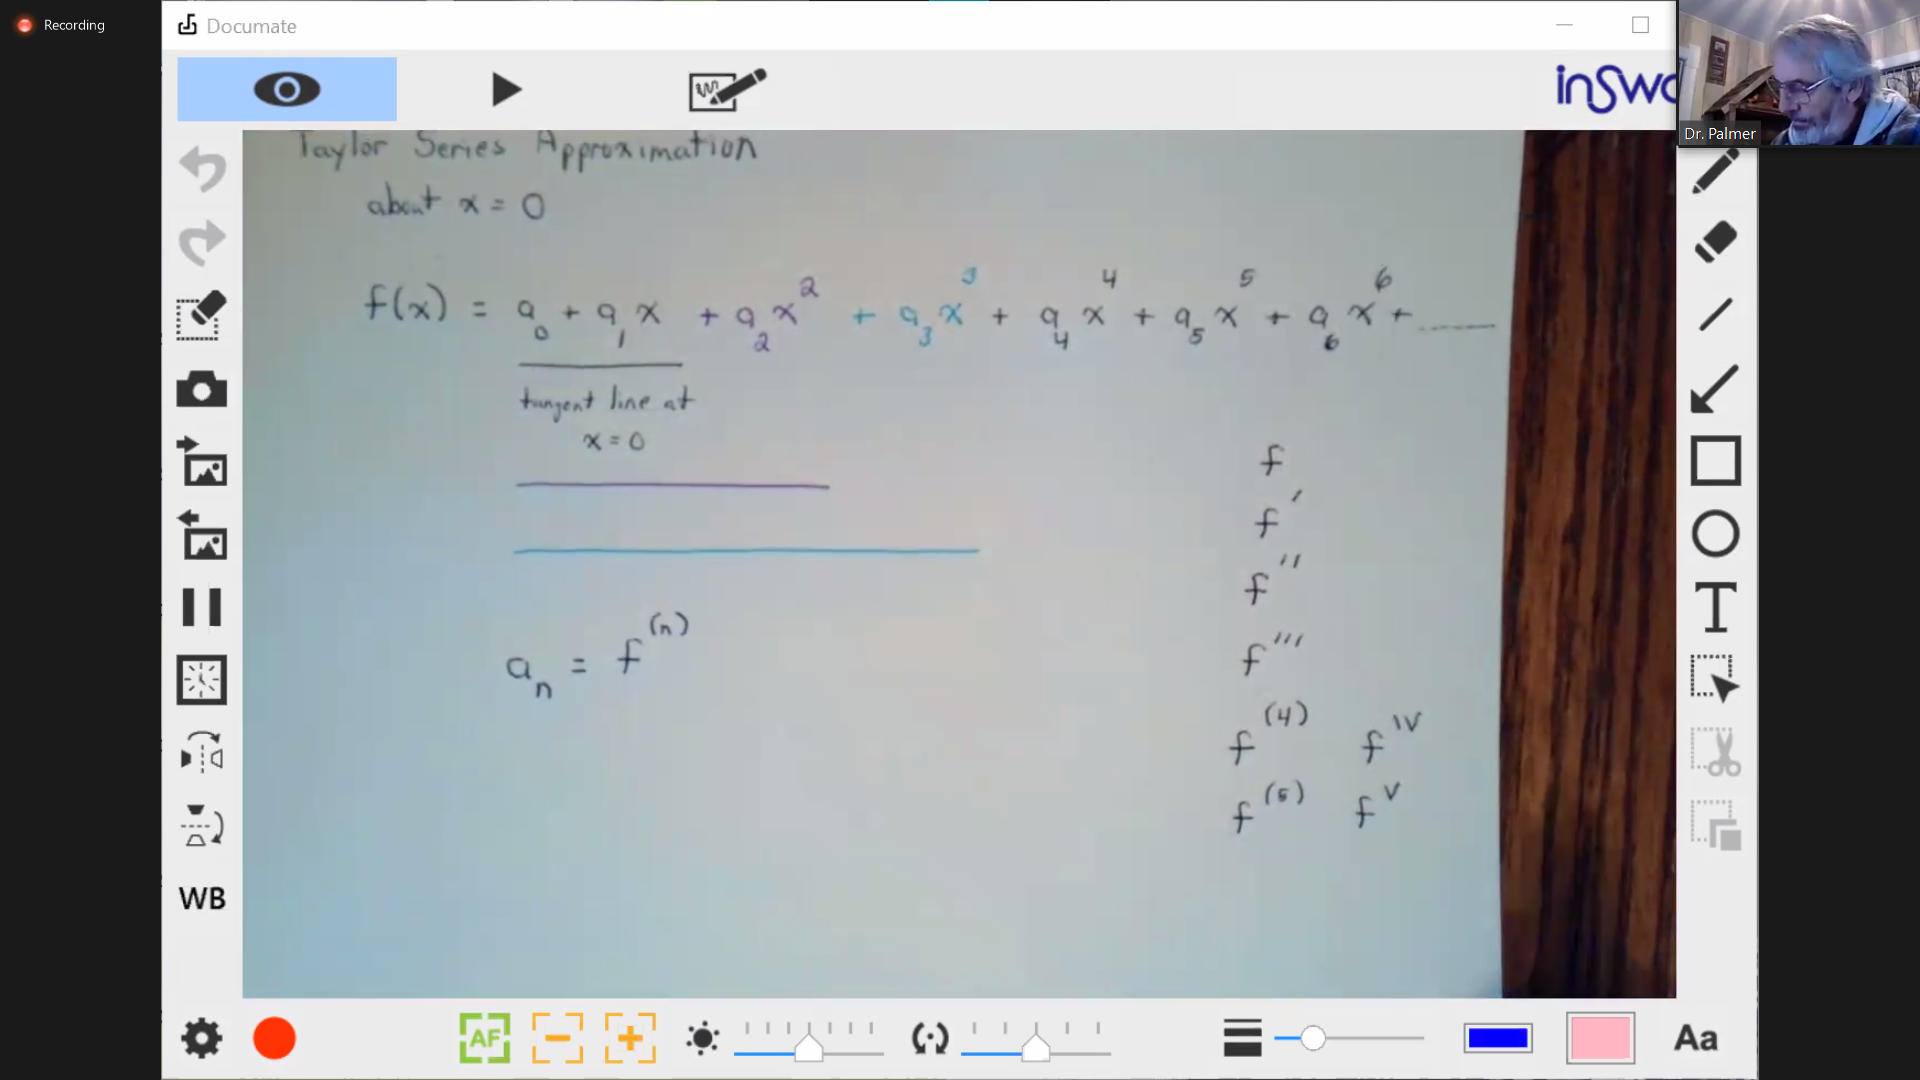 Recording
Documate
inSwo
Dr. Palmer
Taylor Series Approximation
about x = 0
f(x) = a₀ + a₁x + a₂x² + a₃x³ + a₄x⁴ + a₅x⁵ + a₆x⁶ + ......
tangent line at
x = 0
f
f′
f″
f‴
aₙ = f⁽ⁿ⁾
f⁽⁴⁾ f^IV
f⁽⁵⁾ f^V
T
WB
AF
Aa